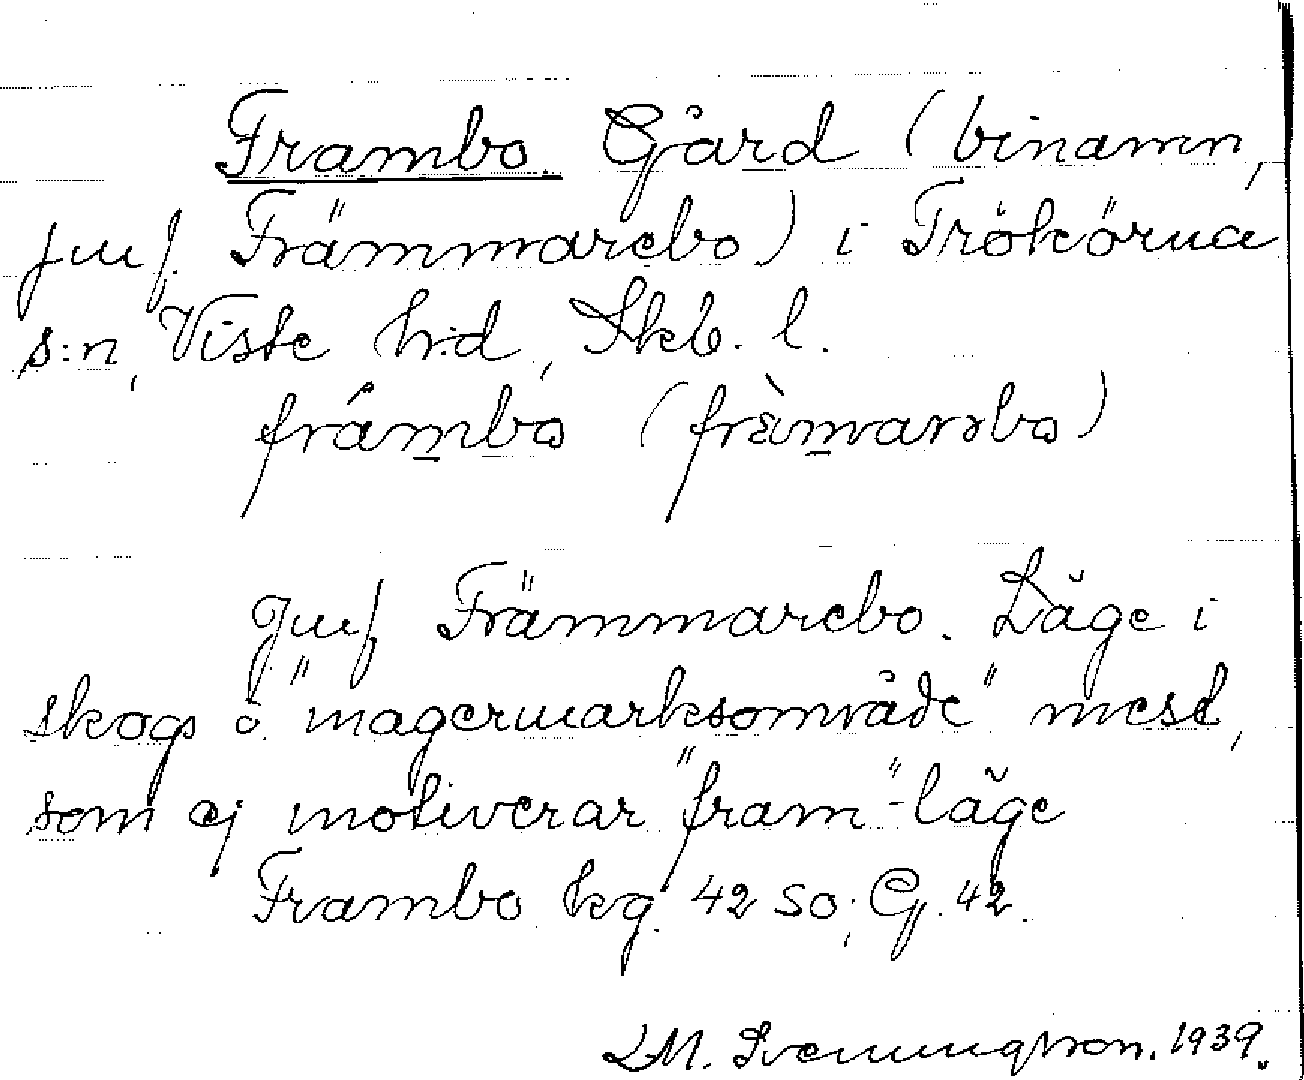 Frambo Gård (binamn,
jmf. Främmarebo) i Trökörna
s:n, Viste h:d, Skb. l.
frámbo (frὲmarəbo)
Jmf Främmarebo. Läge i
skogs o. "magermarksområde" mest,
som ej motiverar "fram"-läge
Frambo kg. 42 SO; G. 42.
LM. Svenungsson. 1939.